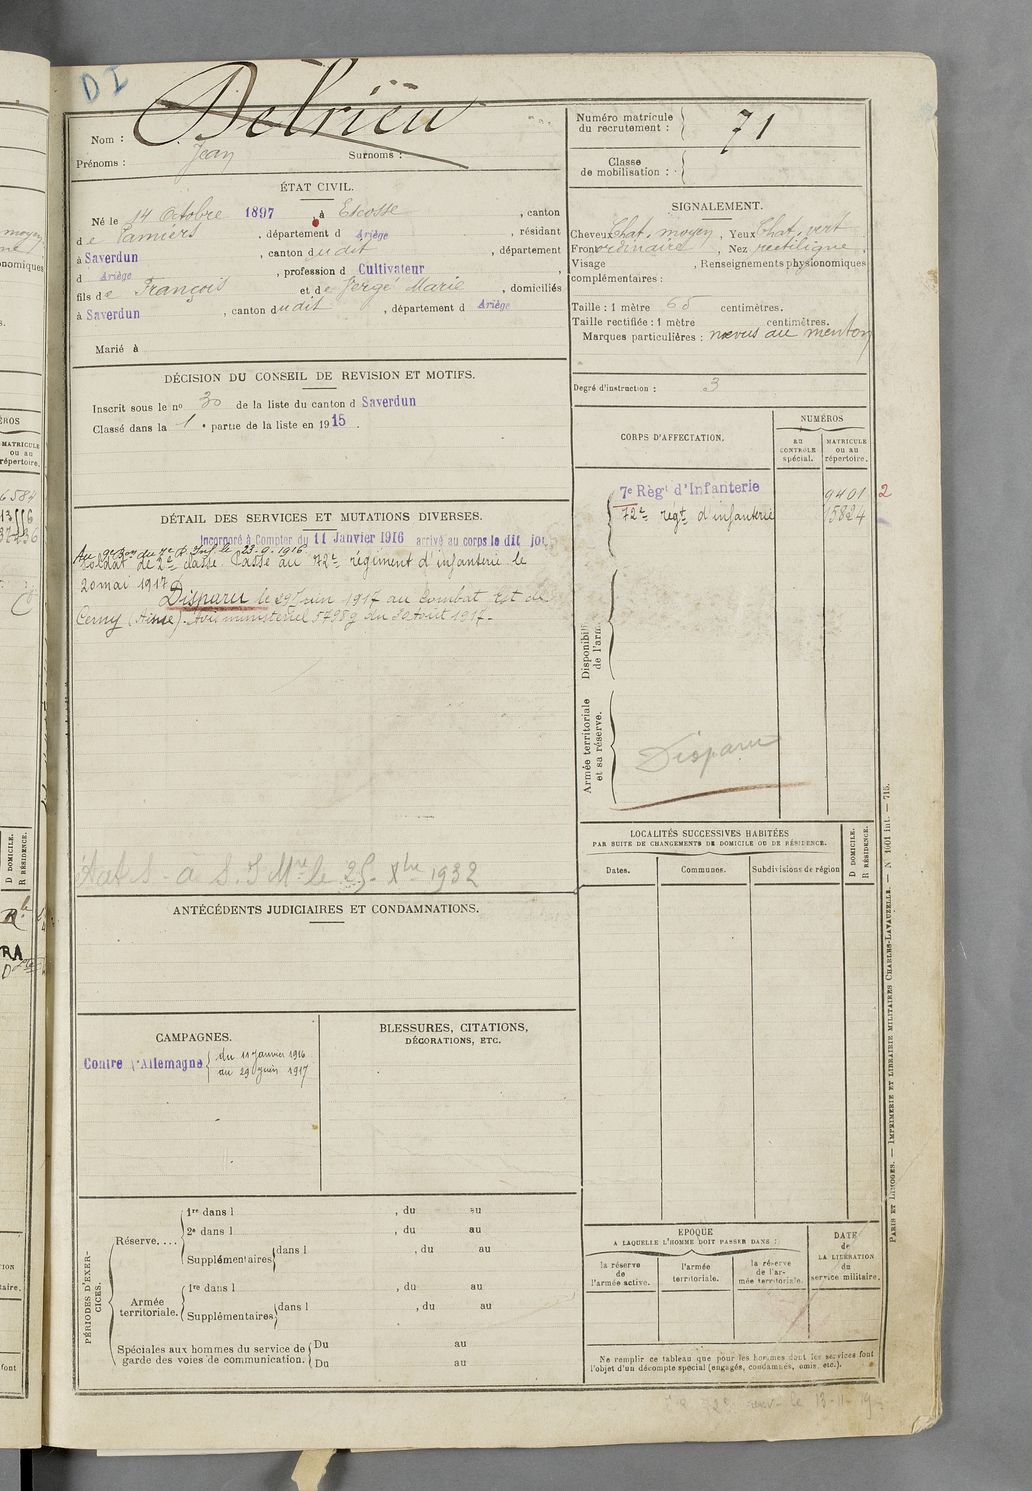 DI
Delrieu
Nom :
Prénoms : Jean Surnoms :
Numéro matricule
du recrutement : 71
Classe
de mobilisation :
ÉTAT CIVIL.
Né le 14 Octobre 1897, à Escosse, canton
de Pamiers, département d Ariège, résidant
à Saverdun, canton dudit, département
d Ariège, profession d Cultivateur,
fils de François et de Vergé Marie, domiciliés
à Saverdun, canton dudit, département d Ariège
Marié à
SIGNALEMENT.
Cheveux Chat. moyen, Yeux Chat. vert
Front ordinaire, Nez rectiligne
Visage , Renseignements physionomiques
complémentaires :
Taille : 1 mètre 65 centimètres.
Taille rectifiée : 1 mètre centimètres.
Marques particulières : nævus au menton
Degré d'instruction : 3
DÉCISION DU CONSEIL DE REVISION ET MOTIFS.
Inscrit sous le nº 30 de la liste du canton d Saverdun
Classé dans la 1e partie de la liste en 1915.
DÉTAIL DES SERVICES ET MUTATIONS DIVERSES.
Incorporé à Compter du 11 Janvier 1916 arrivé au corps le dit jour
Au 9e Bon du 7e R. Inf. le 23-9-1916
Soldat de 2e classe. Passé au 72e régiment d'infanterie le
20 mai 1917
Disparu le 29 Juin 1917 au combat Est de
Cerny (Aisne). Avis ministériel 5798 g du 30 Août 1917.
S. a S. 25 Xbre 1932
CORPS D'AFFECTATION.
NUMÉROS
AU
CONTRÔLE
spécial.
MATRICULE
ou au
répertoire.
7e Régt d'Infanterie 9401 2
72e régt d'infanterie 15824
Disponibilité
de l'armée
Armée territoriale
et sa réserve.
Disparu
LOCALITÉS SUCCESSIVES HABITÉES
PAR SUITE DE CHANGEMENTS DE DOMICILE OU DE RÉSIDENCE.
Dates.
Communes.
Subdivisions de région
D DOMICILE.
R RÉSIDENCE.
ANTÉCÉDENTS JUDICIAIRES ET CONDAMNATIONS.
CAMPAGNES.
Contre l'Allemagne du 11 Janvier 1916
au 29 Juin 1917
BLESSURES, CITATIONS,
DÉCORATIONS, ETC.
PÉRIODES D'EXER-
CICES.
Réserve....
1re dans l , du au
2e dans l , du au
Supplémentaires dans l , du au
Armée
territoriale.
1re dans l , du au
Supplémentaires dans l , du au
Spéciales aux hommes du service de
garde des voies de communication.
Du au
Du au
EPOQUE
A LAQUELLE L'HOMME DOIT PASSER DANS :
la réserve
de
l'armée active.
l'armée
territoriale.
la réserve
de l'ar-
mée territoriale.
DATE
de
LA LIBÉRATION
du
service militaire.
Ne remplir ce tableau que pour les hommes dont les services font
l'objet d'un décompte spécial (engagés, condamnés, omis, etc.).
PARIS ET LIMOGES. — IMPRIMERIE ET LIBRAIRIE MILITAIRES CHARLES-LAVAUZELLE. — N 1001 Int. — 715.